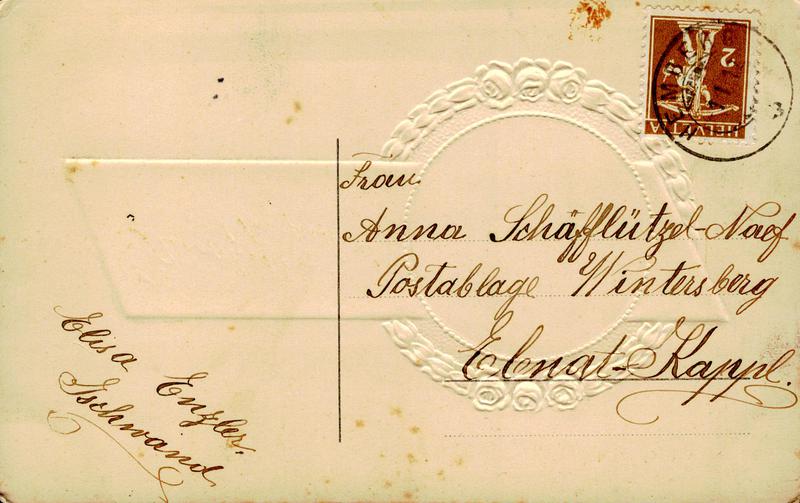 2
HELVETIA
HEMBERG
Frau
Anna Schäfflützel-Naef
Postablage Wintersberg
Ebnat-Kappl.
Elisa Enzler.
Gschwind